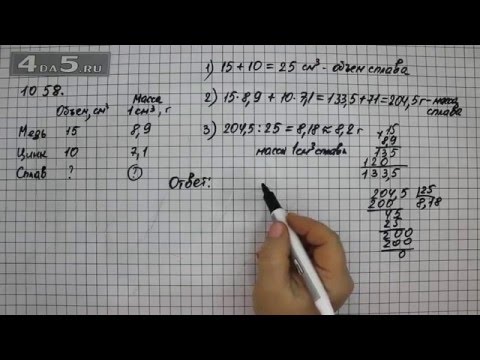 4DA5.RU
1058.
Объем, см³ Масса 1 см³, г
Медь 15 8,9
Цинк 10 7,1
Сплав ? ?
1) 15 + 10 = 25 см³ - объем сплава
2) 15·8,9 + 10·7,1 = 133,5 + 71 = 204,5 г - масса сплава
3) 204,5 : 25 = 8,18 ≈ 8,2 г
масса 1 см³ сплава
Ответ:
× 15
8,9
135
120
133,5
204,5 | 25
200 8,18
45
25
200
200
0